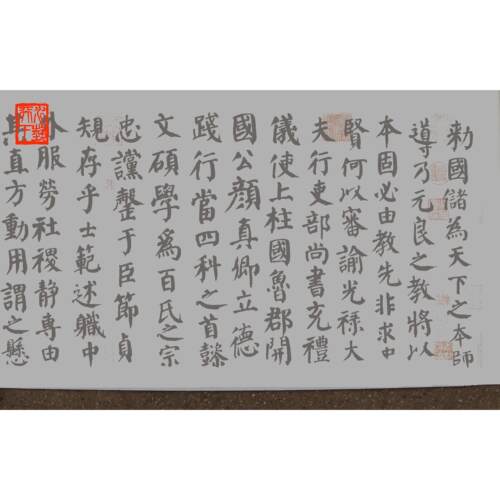 勑國儲為天下之本師
導乃元良之教將以
本固必由教先非求中
賢何以審諭光祿大
夫行吏部尚書充禮
儀使上柱國魯郡開
國公顏真卿立德
踐行當四科之首懿
文碩學為百氏之宗
忠讜罄于臣節貞
規存乎士範述職中
外服勞社稷靜專由
其直方動用謂之懸